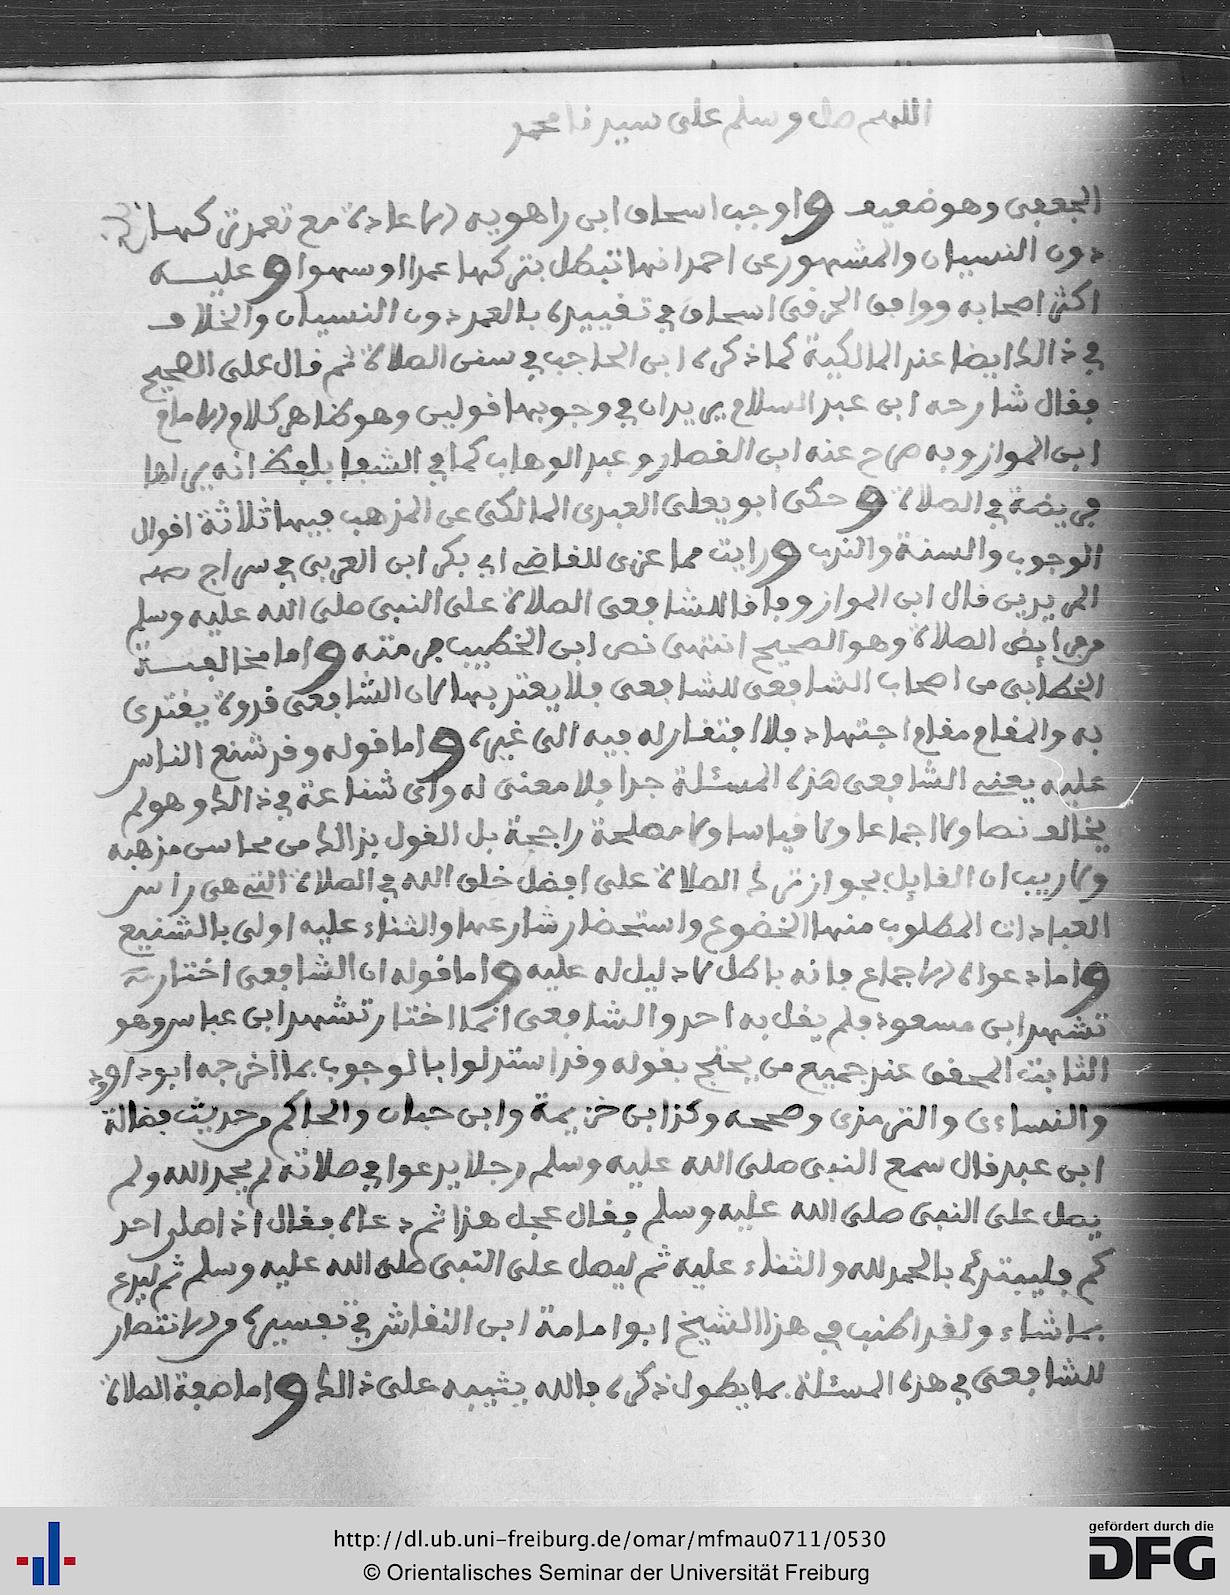 اللهم صل وسلم على سيدنا محمد
الجعفي وهو ضعيف واوجب اسحاق ابن راهويه الاعادة مع تعمد تركها
دون النسيان والمشهور عن احمد انها تبطل بتركها عمدا او سهوا وعليه
اكثر اصحابه ووافق الخرقي اسحاق في تقييده بالعمد دون النسيان والخلاف
في ذالك ايضا عند المالكية كما ذكره ابن الحاجب في سنن الصلاة ثم قال على الصحيح
فقال شارحه ابن عبد السلام يريد ان في وجوبها قولين وهو ظاهر كلام الامام
ابن المواز وبه صرح عنه ابن القصار وعبد الوهاب كما في الشفا بلفظ انه يراها
فريضة في الصلاة وحكى ابو يعلى العبدي المالكي عن المذهب فيها ثلاثة اقوال
الوجوب والسنة والندب ورايت مما عزي للقاضي ابي بكر ابن العربي في سراج
المريدين قال ابن المواز وجافا للشافعي الصلاة على النبي صلى الله عليه وسلم
من فرايض الصلاة وهو الصحيح انتهى نص ابن الخطيب من متنه واما مخالفة
الخطابي من اصحاب الشافعي للشافعي فلا يعتد بها لان الشافعي قدوة يقتدى
به والمقام مقام اجتهاد فلا افتقار له فيه الى غيره واما قوله وقد شنع الناس
عليه يعني الشافعي هذه المسئلة جدا فلا معنى له واي شناعة في ذالك وهو لم
يخالف نصا ولا اجماعا ولا قياسا ولا مصلحة راجحة بل القول بذالك من محاسن مذهبه
ولا ريب ان القايل بجواز ترك الصلاة على افضل خلق الله في الصلاة التي هي راس
العبادات المطلوب منها الخضوع واستحضار شارعها والثناء عليه اولى بالشنيع
واما دعواه الاجماع فانه باطل لا دليل له عليه واما قوله ان الشافعي اختار
تشهد ابن مسعود فلم يقل به احد والشافعي انما اختار تشهد ابن عباس وهو
الثابت المحقق عند جميع من يحتج بقوله وقد استدلوا بالوجوب بما اخرجه ابو داود
والنساءي والترمذي وصححه وكذا ابن خزيمة وابن حبان والحاكم من حديث فضالة
ابن عبد قال سمع النبي صلى الله عليه وسلم رجلا يدعوا في صلاته لم يحمد الله ولم
يصل على النبي صلى الله عليه وسلم فقال عجل هذا ثم دعاه فقال اذا صلى احد
كم فليبتدئ بالحمد لله والثناء عليه ثم ليصل على النبي صلى الله عليه وسلم ثم ليدع
بما شاء ولقد اطنب في هذا الشيخ ابو امامة ابن النقاش في تفسيره من الانتصار
للشافعي في هذه المسئلة بما يطول ذكره فالله يثيبه على ذالك واما صفة الصلاة
http://dl.ub.uni-freiburg.de/omar/mfmau0711/0530
© Orientalisches Seminar der Universität Freiburg
gefördert durch die
DFG